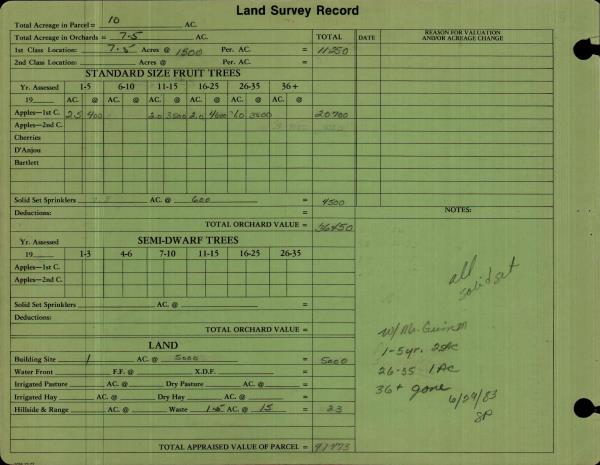 Land Survey Record
Total Acreage in Parcel = 10 AC.
Total Acreage in Orchards = 7.5 AC. TOTAL DATE REASON FOR VALUATION AND/OR ACREAGE CHANGE
1st Class Location: 7.5 Acres @ 1500 Per. AC. = 11250
2nd Class Location: Acres @ Per. AC. =
STANDARD SIZE FRUIT TREES
Yr. Assessed 1-5 6-10 11-15 16-25 26-35 36+
19 AC. @ AC. @ AC. @ AC. @ AC. @ AC. @
Apples—1st C. 2.5 400 2.0 3500 2.0 4600 1.0 3500 20700
Apples—2nd C.
Cherries
D'Anjou
Bartlett
Solid Set Sprinklers AC. @ 600 = 4500
Deductions: =
NOTES:
TOTAL ORCHARD VALUE = 36450
SEMI-DWARF TREES
Yr. Assessed
19 1-3 4-6 7-10 11-15 16-25 26-35
Apples—1st C.
Apples—2nd C.
all
solid set
Solid Set Sprinklers AC. @ =
Deductions:
TOTAL ORCHARD VALUE =
LAND
Building Site 1 AC. @ 5000 = 5000
Water Front F.F. @ X.D.F. =
Irrigated Pasture AC. @ Dry Pasture AC. @ =
Irrigated Hay AC. @ Dry Hay AC. @ =
Hillside & Range AC. @ Waste 1.5 AC. @ 15 = 23
w/ Mr.
1-5 yr. 2.5 Ac
26-35 1 Ac
36+ gone
6/29/83
SP
TOTAL APPRAISED VALUE OF PARCEL = 41473